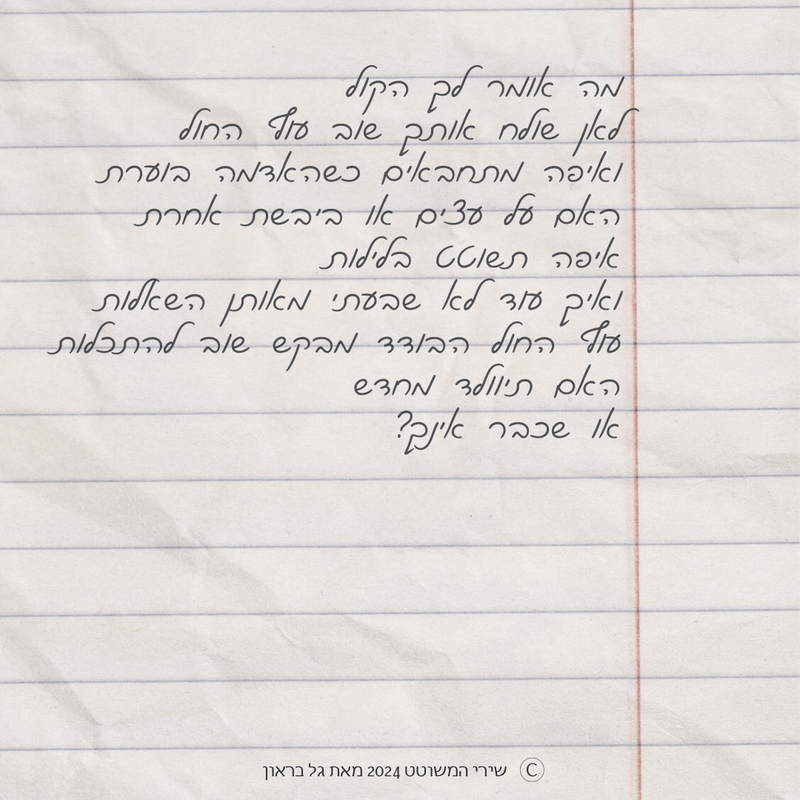 מה אומר לך הקול
לאן שולח אותך שוב עוף החול
ואיפה מתחבאים כשהאדמה בוערת
האם על עצים או ביבשת אחרת
איפה תשוטט בלילות
ואיך עוד לא שבעתי מאותן השאלות
עוף החול הבודד מבקש שוב להתכלות
האם תיוולד מחדש
או שכבר אינך?
Ⓒ שירי המשוטט 2024 מאת גל בראון